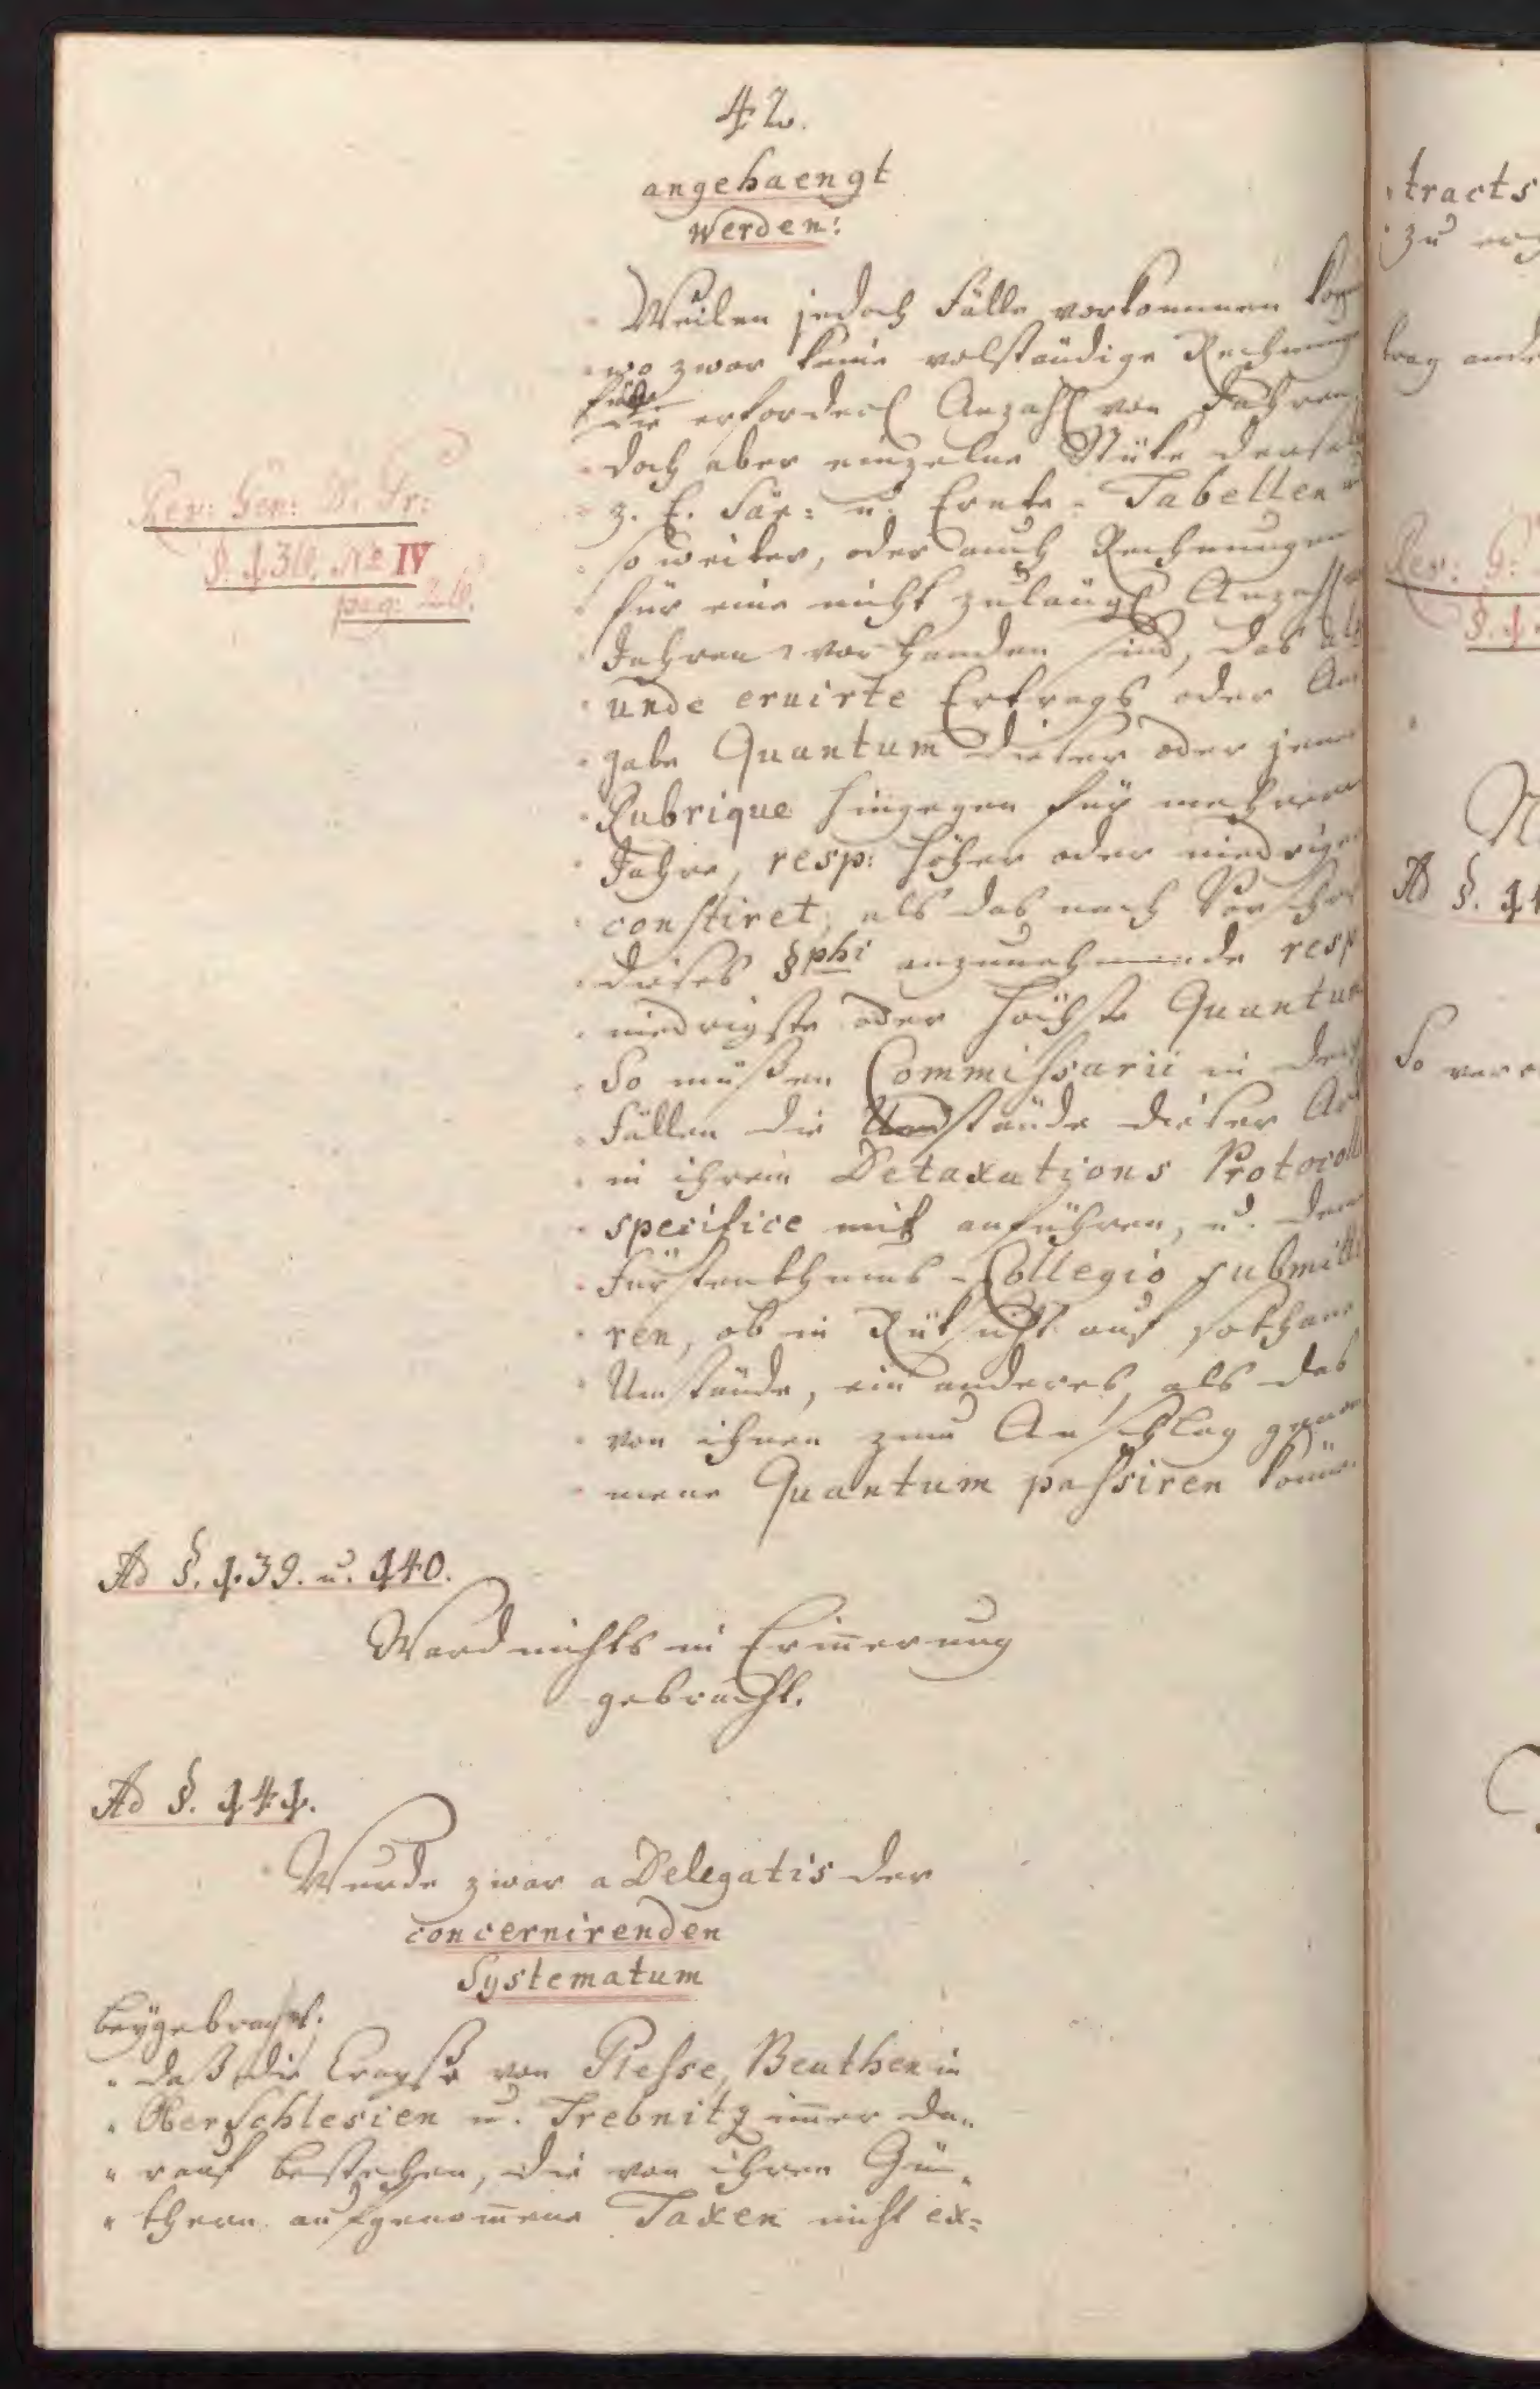 42.
angehaengt
werden:
„ Weilen jedoch Fälle vorkommen
„ wo zwar keine volständige Rechnung
für die erforderl Anzahl von Jahren
„ doch aber einzelne Stüke
„ z. E. Säe= u. Ernte- Tabellen u
„ so weiter, oder auch Rechnungen
„ für eine nicht zulängl Anzahl
„ Jahren vorhanden sind, das
„ unde eruirte Ertrags oder
„ gabe Quantum dieser oder jener
„ Rubrique hingegen für mehrere
„ Jahre, resp: höher oder niedriger
„ constiret, als das nach
„ dieses §phi anzunehmende resp
„ niedrigste oder höchste Quantum
„ So müßen Commissarii in
„ Fällen die Umstände dieser Art
„ in ihrem Detaxations Protocoll
„ specifice mit anführen, u. dem
„ Fürstenthums-Collegio submitti
„ ren, ob in Rüksicht auf sothane
„ Umstände, ein anderes, als das
„ von ihnen zum Anschlag genom
„ mene Quantum passiren könne.
Rev: Gen: L. Pr:
No IV
pag:
Ad §. 139. u. 140.
Ward nichts in Erinnerung
gebracht.
Ad §. 141.
Wurde zwar a Delegatis der
concernirenden
Systematum
beygebracht:
„ daß die Crayße von Plesse, Beuthen in
„ OberSchlesien u. Trebnitz im̅er da„
„ rauf bestehen, die von ihren Gü„
„ thern aufgenom̅ene Taxen nicht ex=
tracts
zu
trag
Rev: G:
Ad §. 14
So